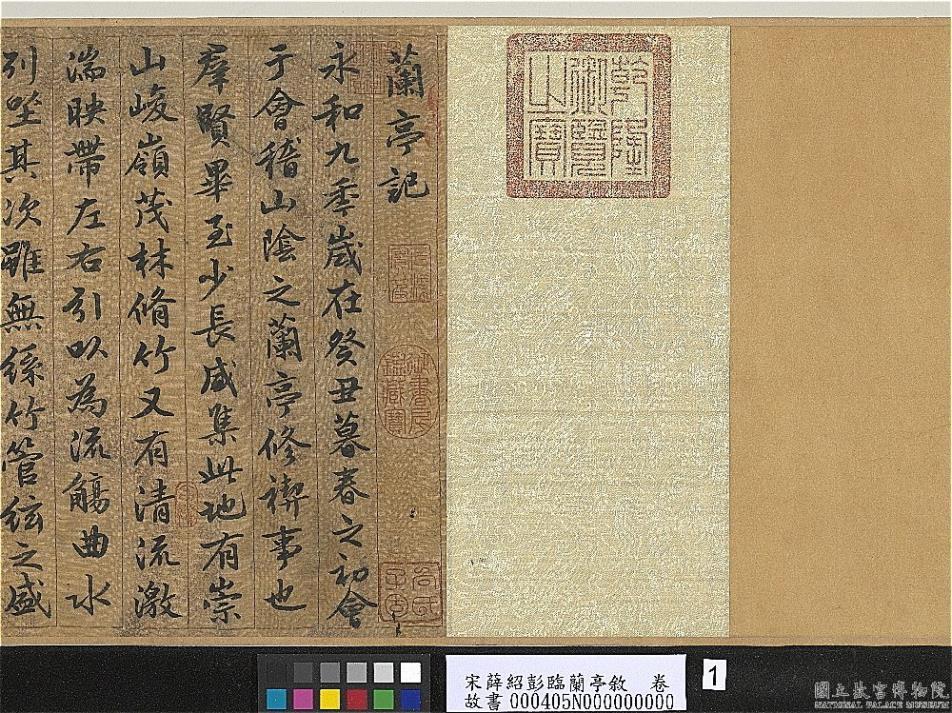 乾隆
御覽
之寶
蘭亭記
永和九秊歲在癸丑暮春之初會
于會稽山陰之蘭亭修禊事也
羣賢畢至少長咸集此地有崇
山峻嶺茂林脩竹又有清流激
湍映帶左右引以為流觴曲水
列坐其次雖無絲竹管絃之盛
宋薛紹彭臨蘭亭敘　卷
故書 000405N000000000
1
國立故宮博物院
NATIONAL PALACE MUSEUM